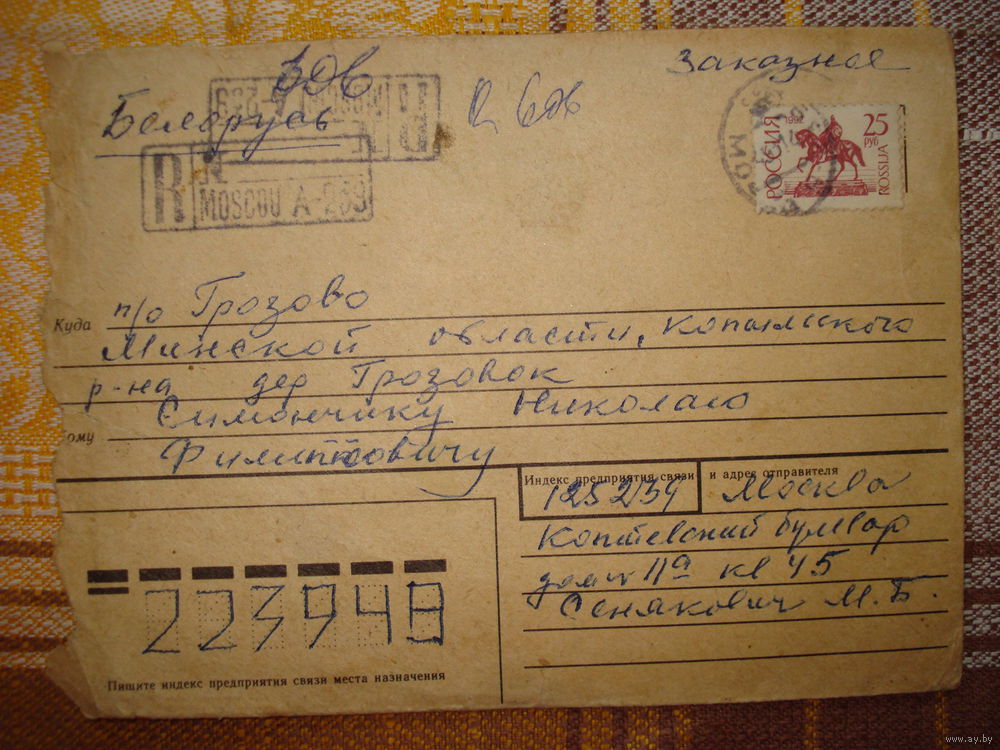 Заказное
Белорусь
R
MOSCOU A-
1992
РОССИЯ
25
РУБ
ROSSIJA
Куда п/о Грозово
Минской области, Копыльского
р-на дер Грозовок
Симончику Николаю
Филипповичу
Индекс предприятия связи и адрес отправителя
Москва
Коптевский бульвар
11а кв 45
Сенякович М.Б.
223948
Пишите индекс предприятия связи места назначения
www.ay.by